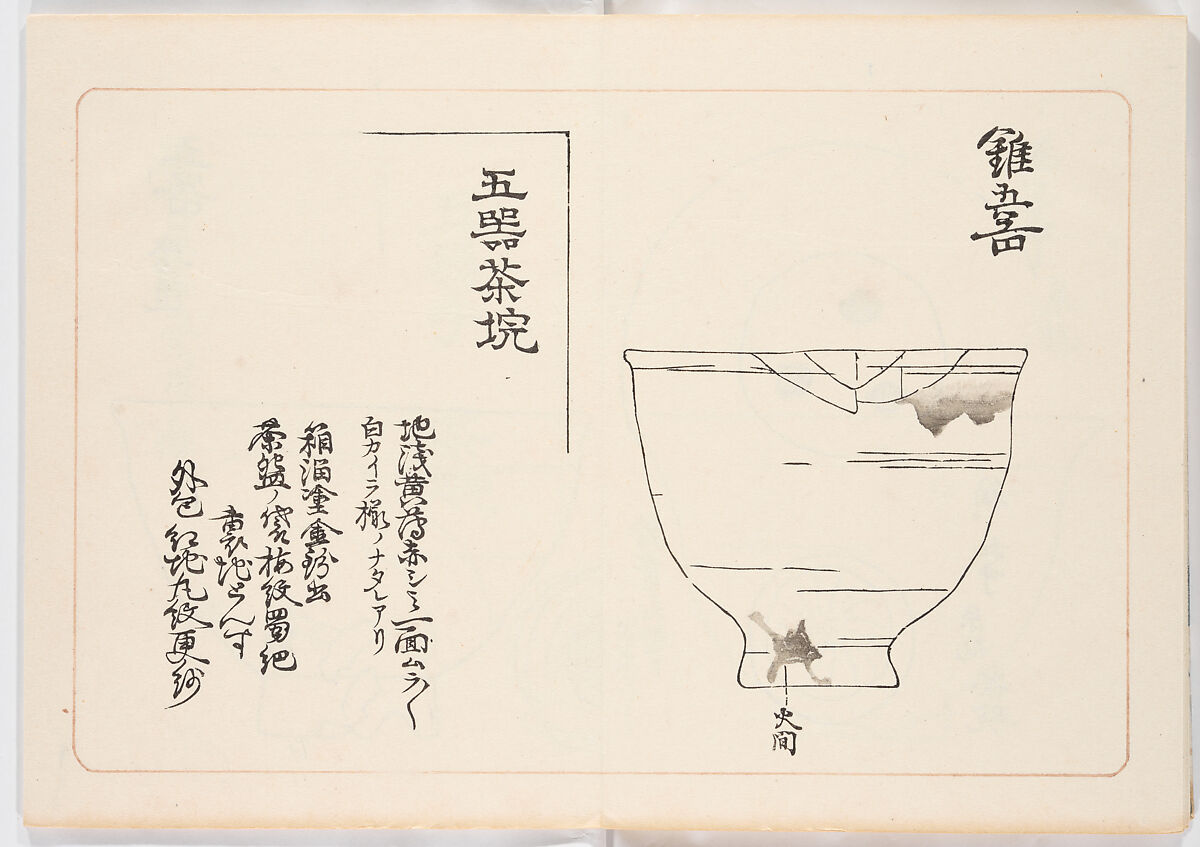 錐呉器
火間
五器茶垸
地浅黄薄赤シミ一面ムラ〱
白カイラ様ノナダレアリ
箱溜塗金粉書
茶盌ノ袋梅紋蜀紀
裏地どんす
外包紅地丸紋更紗